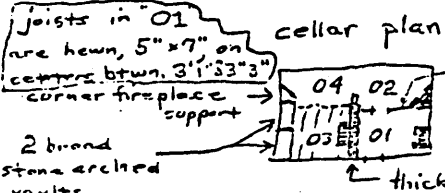 joists in "01"
are hewn, 5" x 7", on
centers btwn. 3'1" 33" 3"
cellar plan
corner fireplace
support
04 02
03 01
2 brand
stone arched
vaults
thick